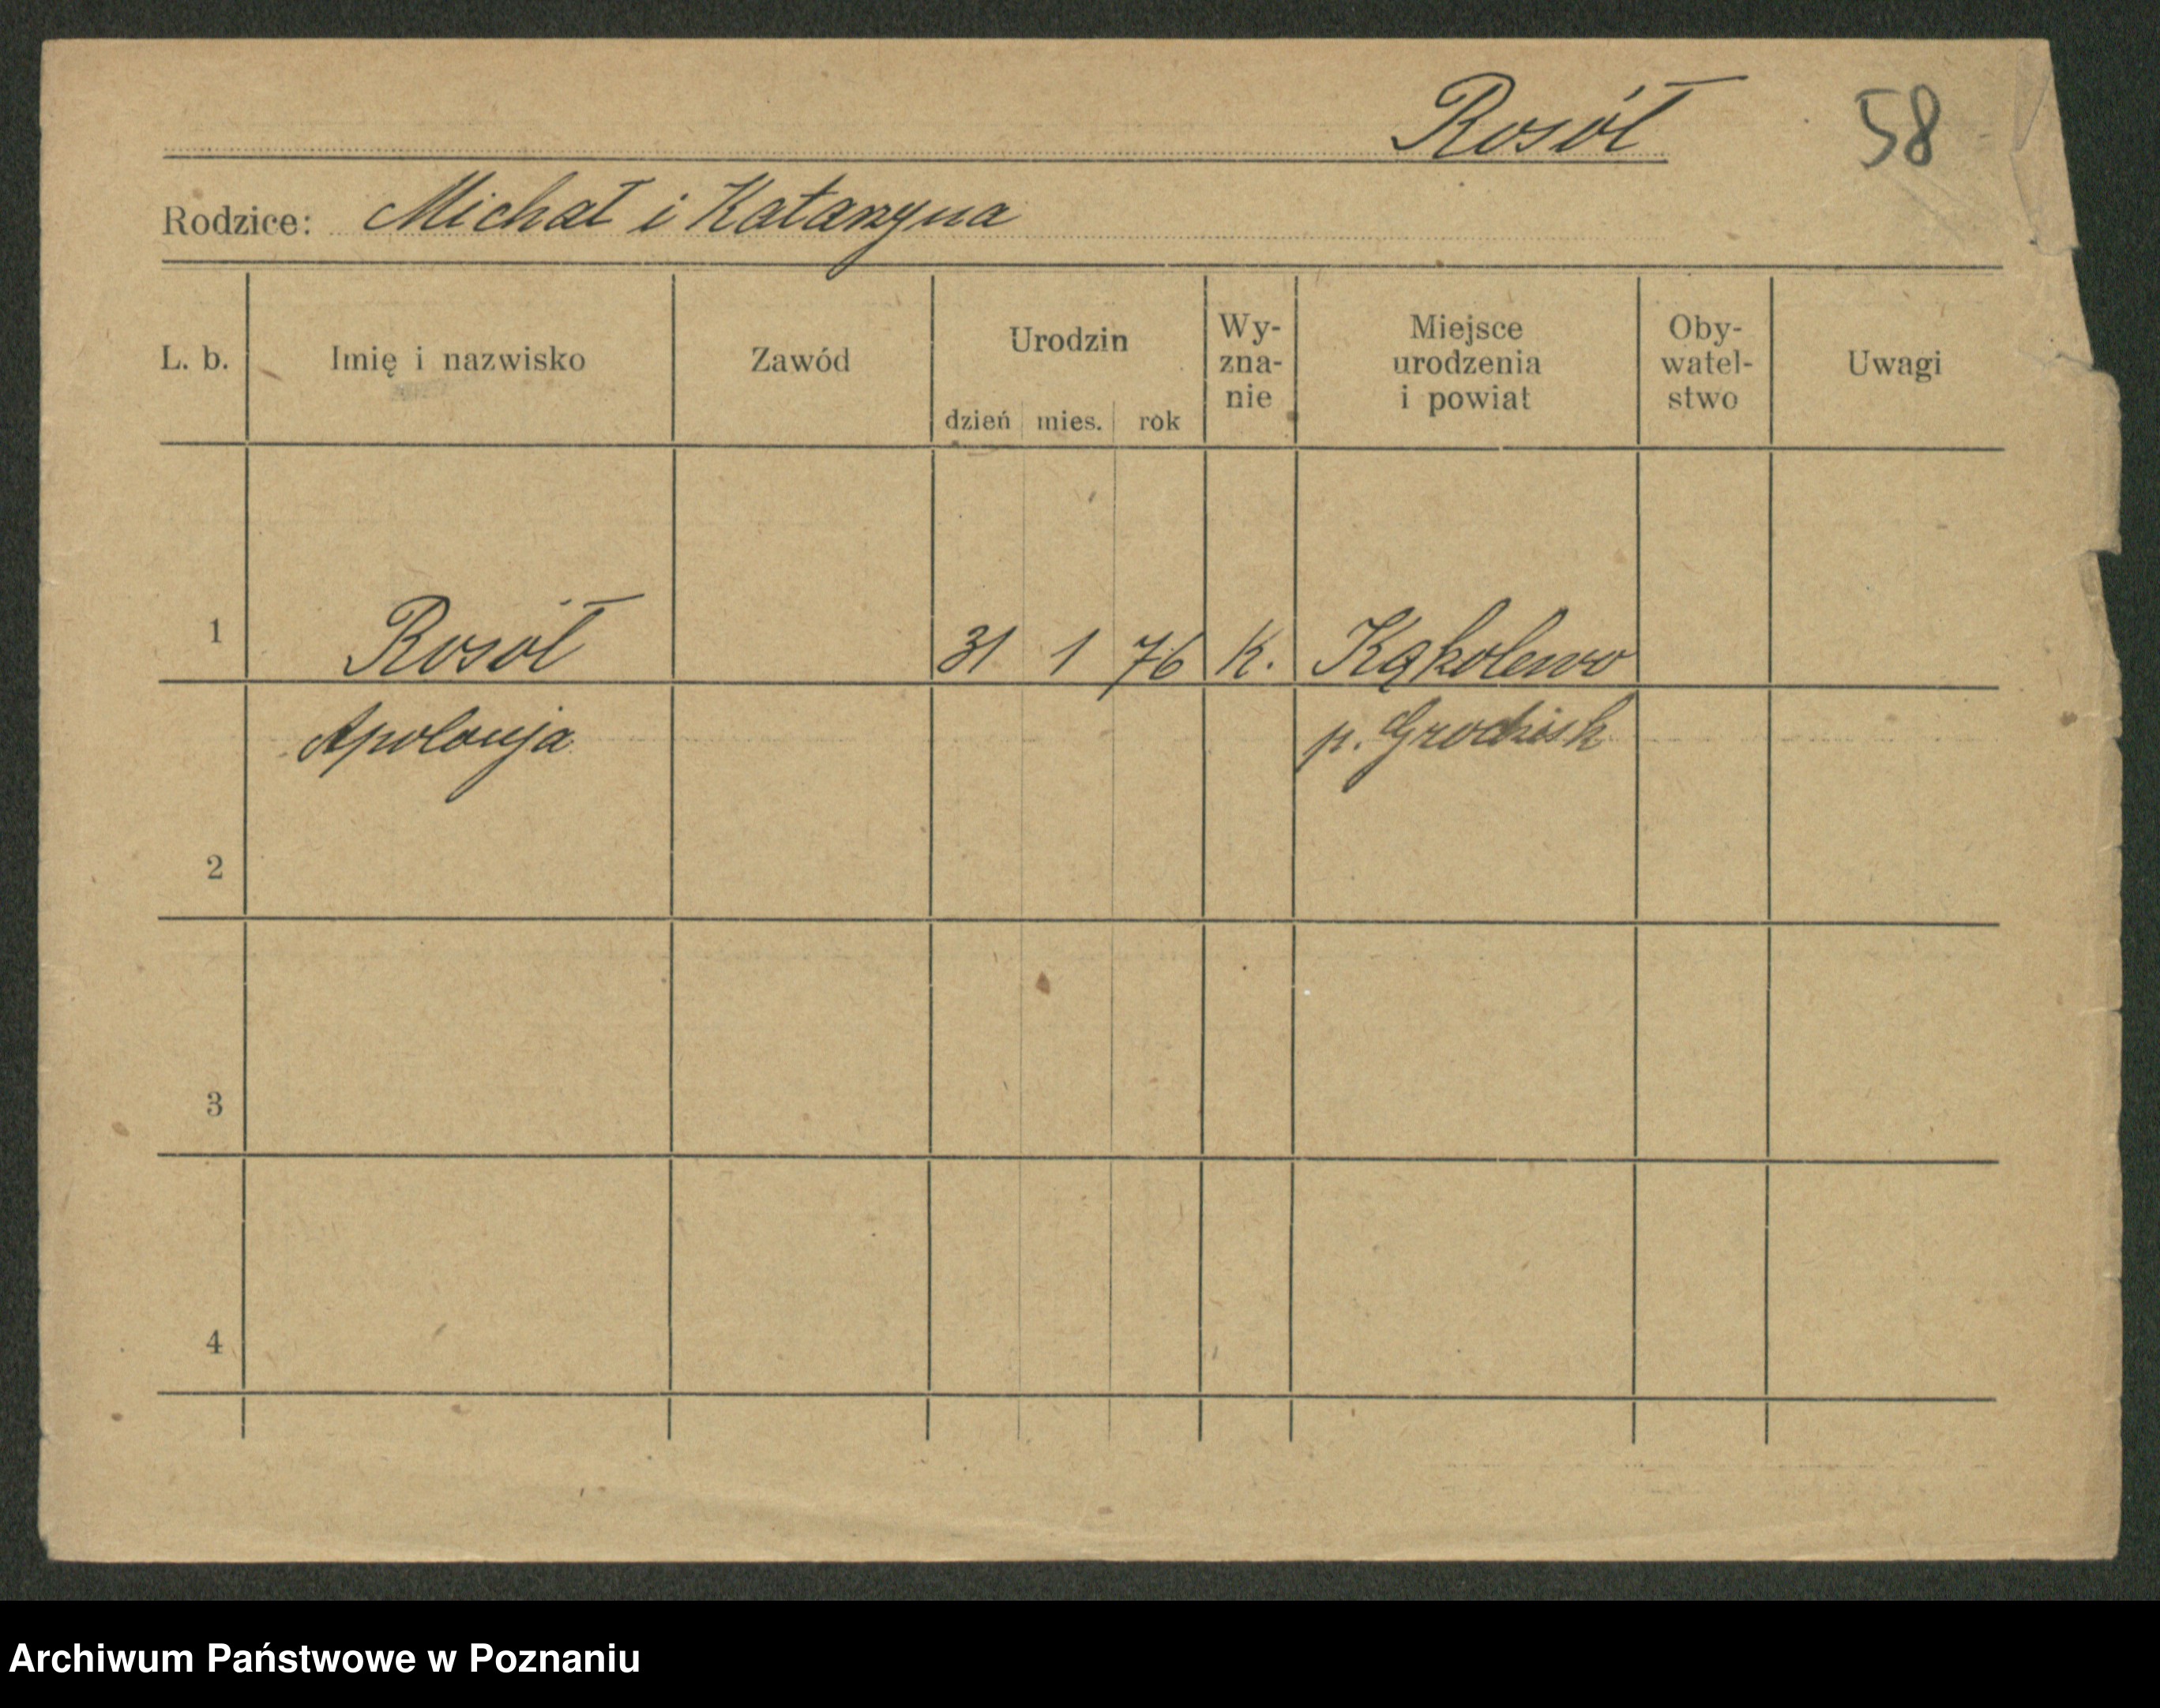 Rosół 58
Rodzice: Michał i Katarzyna
L. b. Imię i nazwisko Zawód Urodzin dzień mies. rok Wy-zna-nie Miejsce urodzenia i powiat Oby-watel-stwo Uwagi
1 Rosół 31 1 76 K. Kąkolewo
Apolonja p. Grodzisk
2
3
4
Archiwum Państwowe w Poznaniu